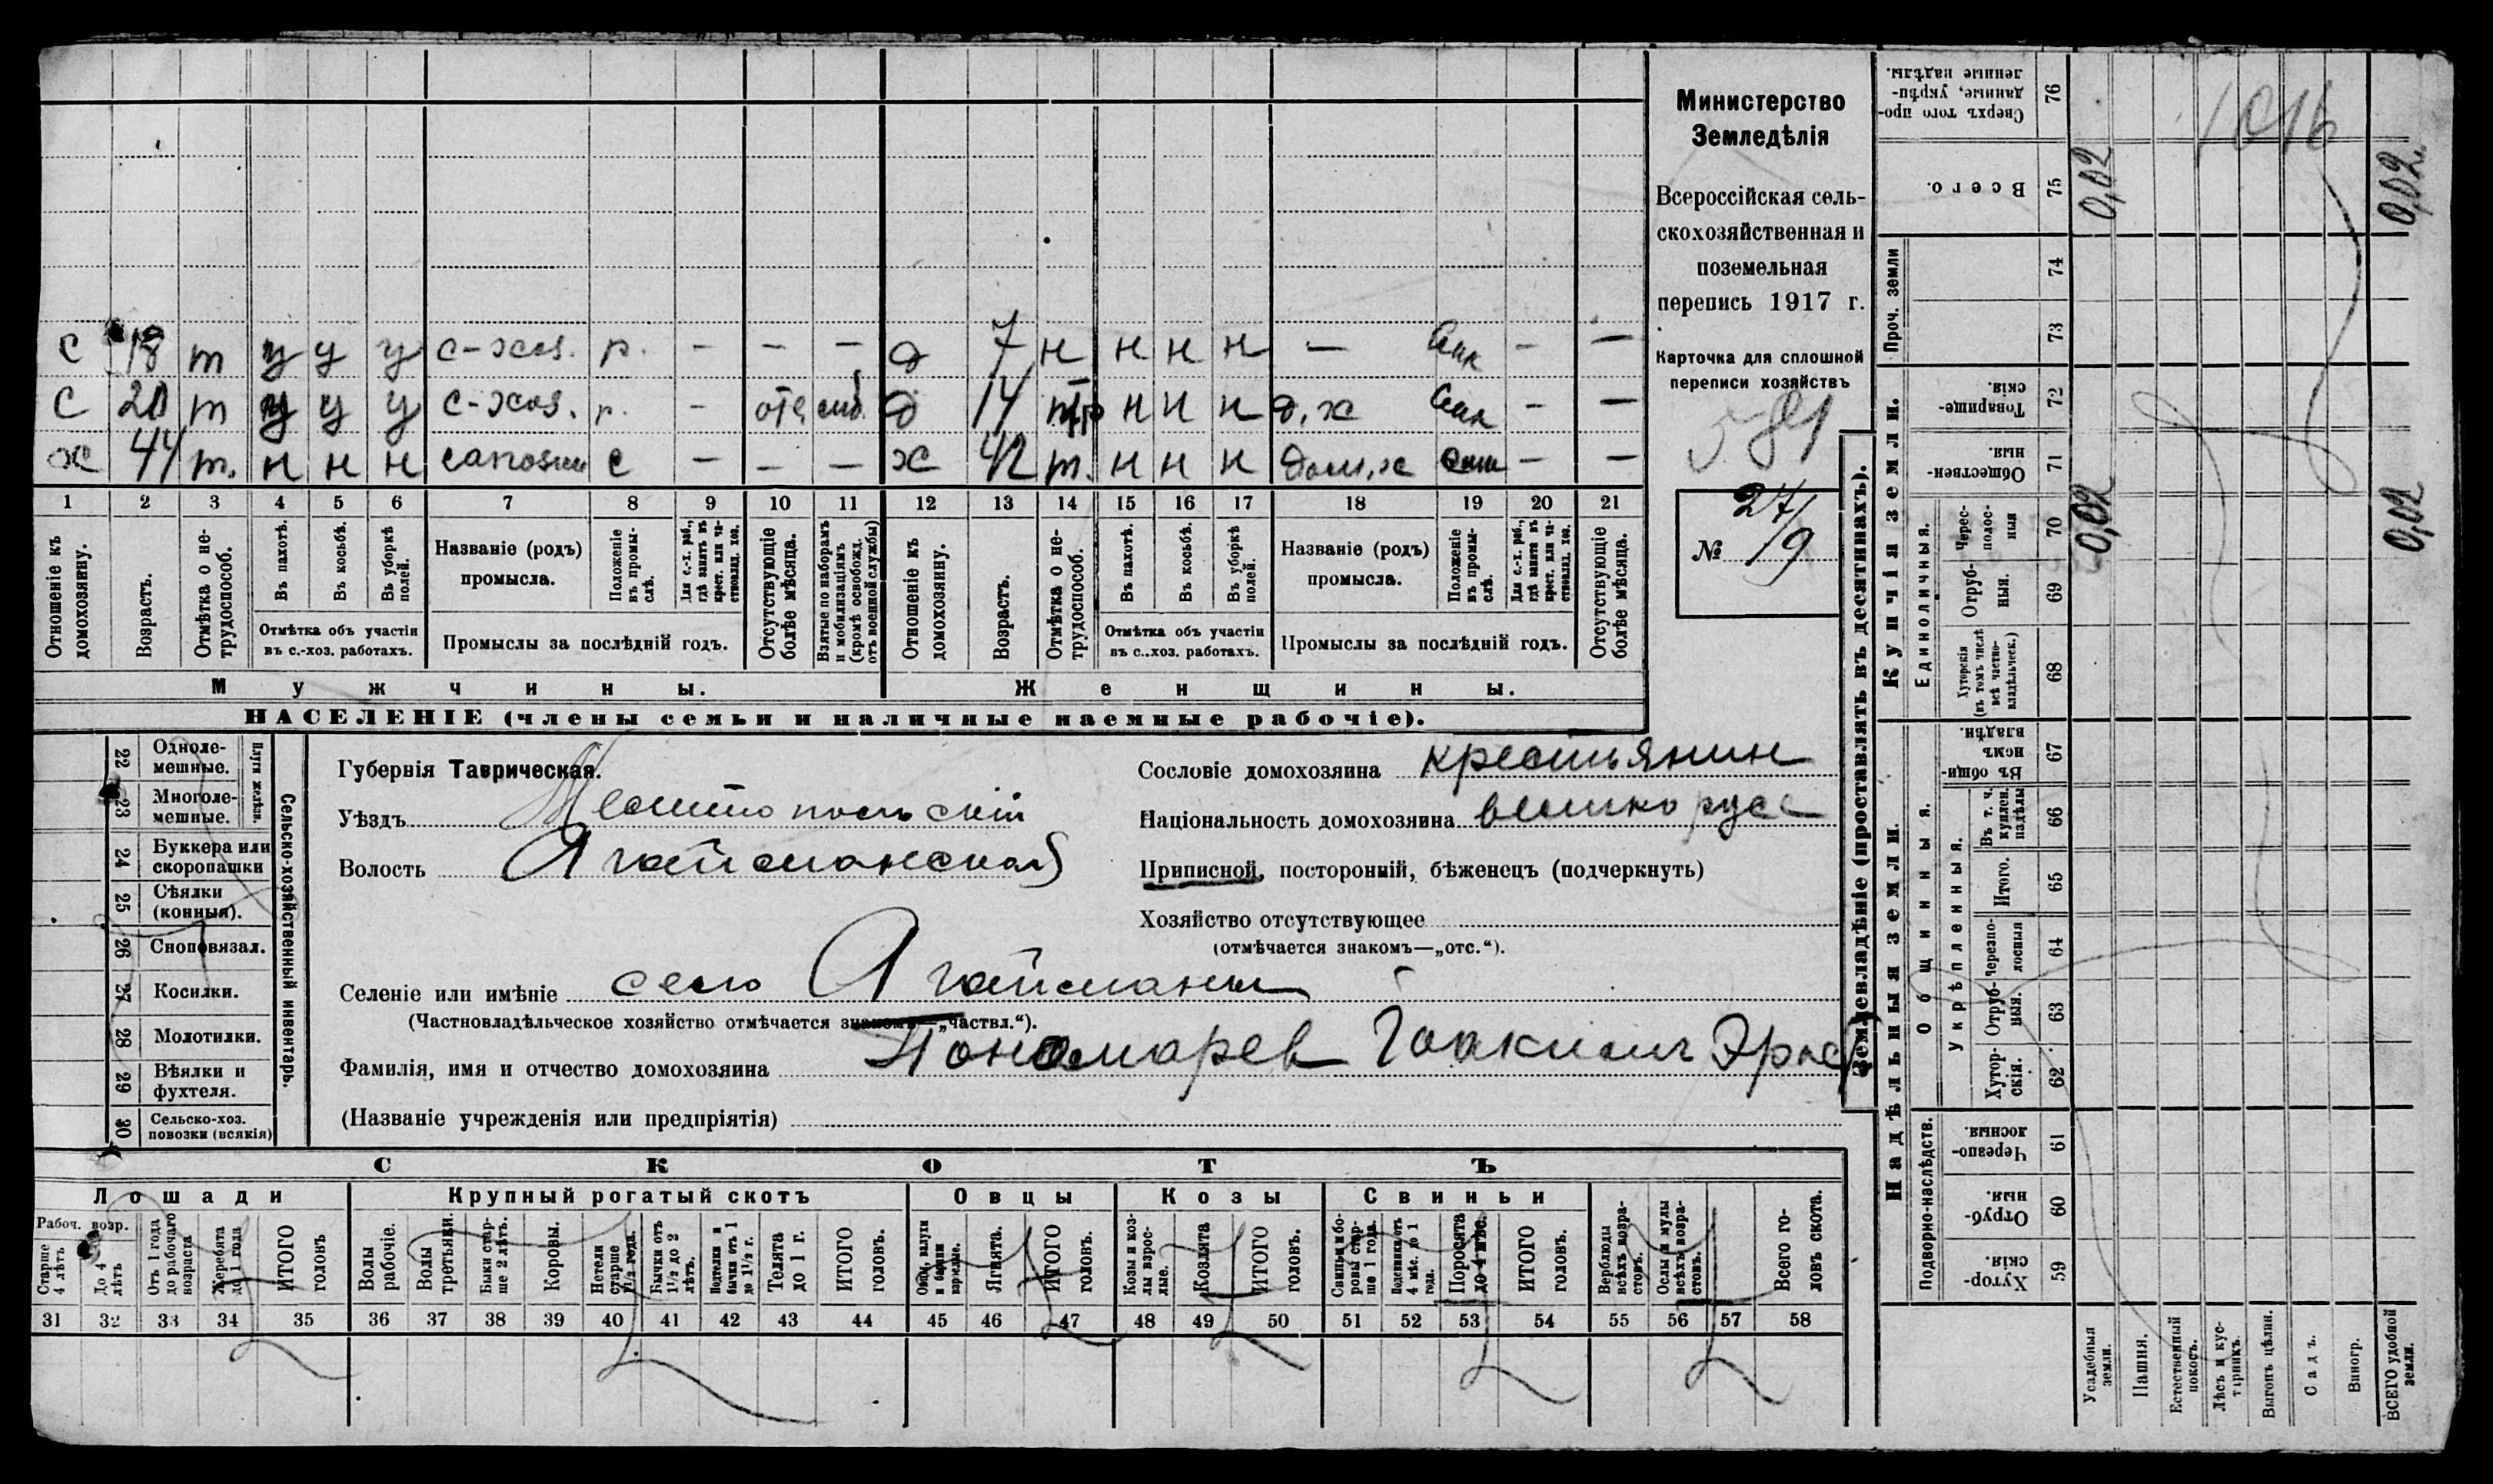 Министерство
Земледѣлія
Всероссійская сель-
скохозяйственная и
поземельная
перепись 1917 г.
Карточка для сплошной
переписи хозяйствъ
№ 27/9
с 18 т у у у с-хоз. р. - - - д 7 н н н н — - —
с 20 т у у у с-хоз. р. - д 14 н н н д.х - —
х 44 т. н н н с - - - х 42 т. н н н дом.х - —
1 2 3 4 5 6 7 8 9 10 11 12 13 14 15 16 17 18 19 20 21
Отношеніе къ домохозяину.
Возрастъ.
Отмѣтка о не-трудоспособ.
Въ пахотѣ.
Въ косьбѣ.
Въ уборкѣ полей.
Отмѣтка объ участіи
въ с.-хоз. работахъ.
Названіе (родъ)
промысла.
Положеніе въ промы-слѣ.
Для с.-х. раб., гдѣ занятъ въ крест. или ча-ствовлад. хоз.
Промыслы за послѣдній годъ.
Отсутствующіе болѣе мѣсяца.
Взятые по наборамъ и мобилизаціямъ (кромѣ освобожд. отъ военной службы)
Отношеніе къ домохозяину.
Возрастъ.
Отмѣтка о не-трудоспособ.
Въ пахотѣ.
Въ косьбѣ.
Въ уборкѣ полей.
Отмѣтка объ участіи
въ с..хоз. работахъ.
Названіе (родъ)
промысла.
Положеніе въ промы-слѣ.
Для с.-х. раб., гдѣ занятъ въ крест. или ча-ствовлад. хоз.
Промыслы за послѣдній годъ.
Отсутствующіе болѣе мѣсяца.
Мужчины.
Женщины.
НАСЕЛЕНІЕ (члены семьи и наличные наемные рабочіе).
Сельско-хозяйственный инвентарь.
Плуги желѣзн.
22 Одноле-мешные.
23 Многоле-мешные.
24 Буккера или скоропашки
25 Сѣялки (конныя).
26 Сноповязал.
27 Косилки.
28 Молотилки.
29 Вѣялки и фухтеля.
30 Сельско-хоз. повозки (всякія)
Губернія Таврическая.
Уѣздъ Мелитопольскій
Волость Агайманская
Сословіе домохозяина крестьянин
Національность домохозяина великорусс
Приписной, посторонній, бѣженецъ (подчеркнуть)
Хозяйство отсутствующее
(отмѣчается знакомъ—„отс.“).
Селеніе или имѣніе село Агайманы
(Частновладѣльческое хозяйство отмѣчается знакомъ—„частвл.“).
Фамилія, имя и отчество домохозяина Пономарев
(Названіе учрежденія или предпріятія)
СКОТЪ
Лошади
Крупный рогатый скотъ
Овцы
Козы
Свиньи
Рабоч. возр.
Старше 4 лѣтъ
До 4 лѣтъ
Отъ 1 года до рабочаго возраста
Жеребята до 1 года
ИТОГО головъ
Волы рабочіе.
Волы третьяки.
Быки стар-ше 2 лѣтъ.
Коровы.
Нетели старше 1½ года.
Бычки отъ 1½ до 2 лѣтъ.
Подтелки и бычки отъ 1 до 1½ г.
Телята до 1 г.
ИТОГО головъ.
Овцы, валухи и бараны взрослые.
Ягнята.
ИТОГО головъ.
Козы и коз-лы взрос-лые.
Козлята
ИТОГО головъ.
Свиньи и бо-ровы стар-ше 1 года.
Подсвинки отъ 4 мѣс. до 1 года.
Поросята до 4 мѣс.
ИТОГО головъ.
Верблюды всѣхъ возра-стовъ.
Ослы и мулы всѣхъ возра-стовъ.
Всего го-ловъ скота.
31 32 33 34 35 36 37 38 39 40 41 42 43 44 45 46 47 48 49 50 51 52 53 54 55 56 57 58
Землевладѣніе (проставлять въ десятинахъ).
Купчія земли.
Надѣльныя земли.
Проч. земли
Единоличныя.
Общинныя.
Укрѣпленныя.
Подворно-наслѣдств.
76 Сверхъ того про-данные, укрѣп-ленные надѣлы.
75 Всего. 0,02 0,02
74
73
72 Товарище-скія.
71 Обществен-ныя.
70 Черес-полос-ныя 0,02 0,02
69 Отруб-ныя.
68 Хуторскія (въ томъ числѣ всѣ частно-владѣльческ.)
67 Въ общин-номъ владѣн.
66 Въ т. ч. куплен. надѣлы
65 Итого.
64 Черезпо-лосныя
63 Отруб-ныя.
62 Хутор-скія.
61 Черезпо-лосныя.
60 Отруб-ныя.
59 Хутор-скія.
Усадебныя земли.
Пашня.
Естественный покосъ.
Лѣсъ и кус-тарникъ.
Выгонъ цѣлин.
Садъ.
Виногр.
ВСЕГО удобной земли.